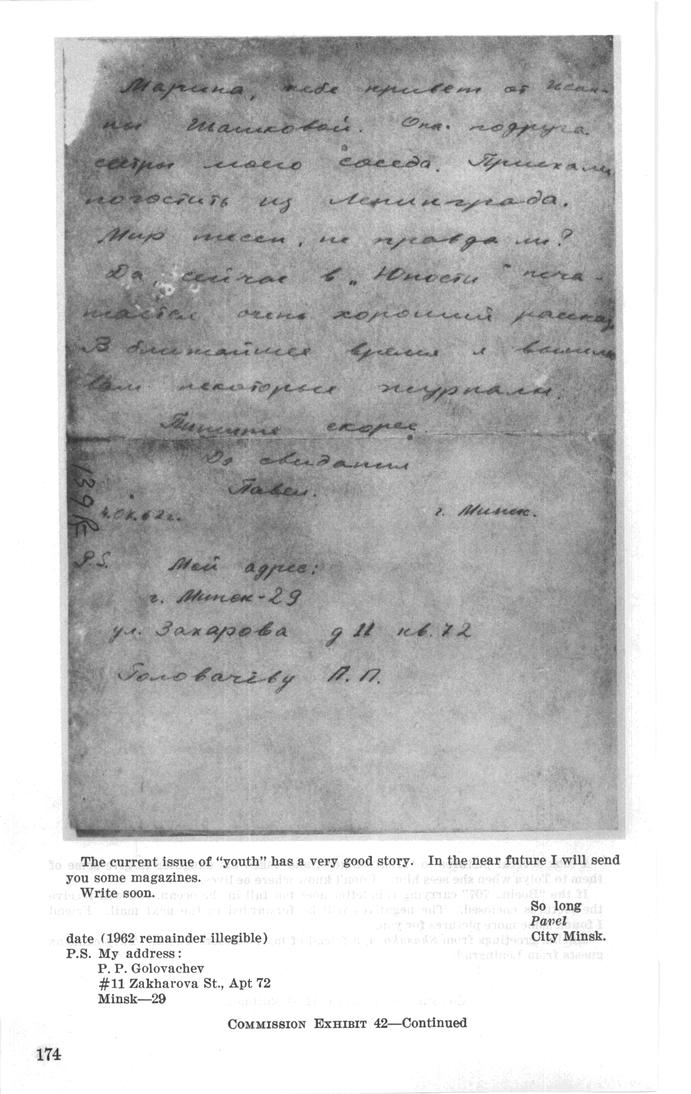 Марина, тебе привет от Жан-
ны Шашковой. Она подруга
сестры моего соседа. Приехали
погостить из Ленинграда.
Мир тесен, не правда ли?
Да, сейчас в „Юности" печа-
тается очень хороший рассказ
В ближайшее время я вышлю
Вам некоторые журналы.
Пишите скорее.
До свидания
Павел.
.62г. г. Минск.
P.S. Мой адрес:
г. Минск-29
ул. Захарова д 11 кв. 72
Головачёву П. П.
The current issue of "youth" has a very good story. In the near future I will send
you some magazines.
Write soon.
So long
Pavel
date (1962 remainder illegible) City Minsk.
P.S. My address:
P. P. Golovachev
#11 Zakharova St., Apt 72
Minsk—29
COMMISSION EXHIBIT 42—Continued
174